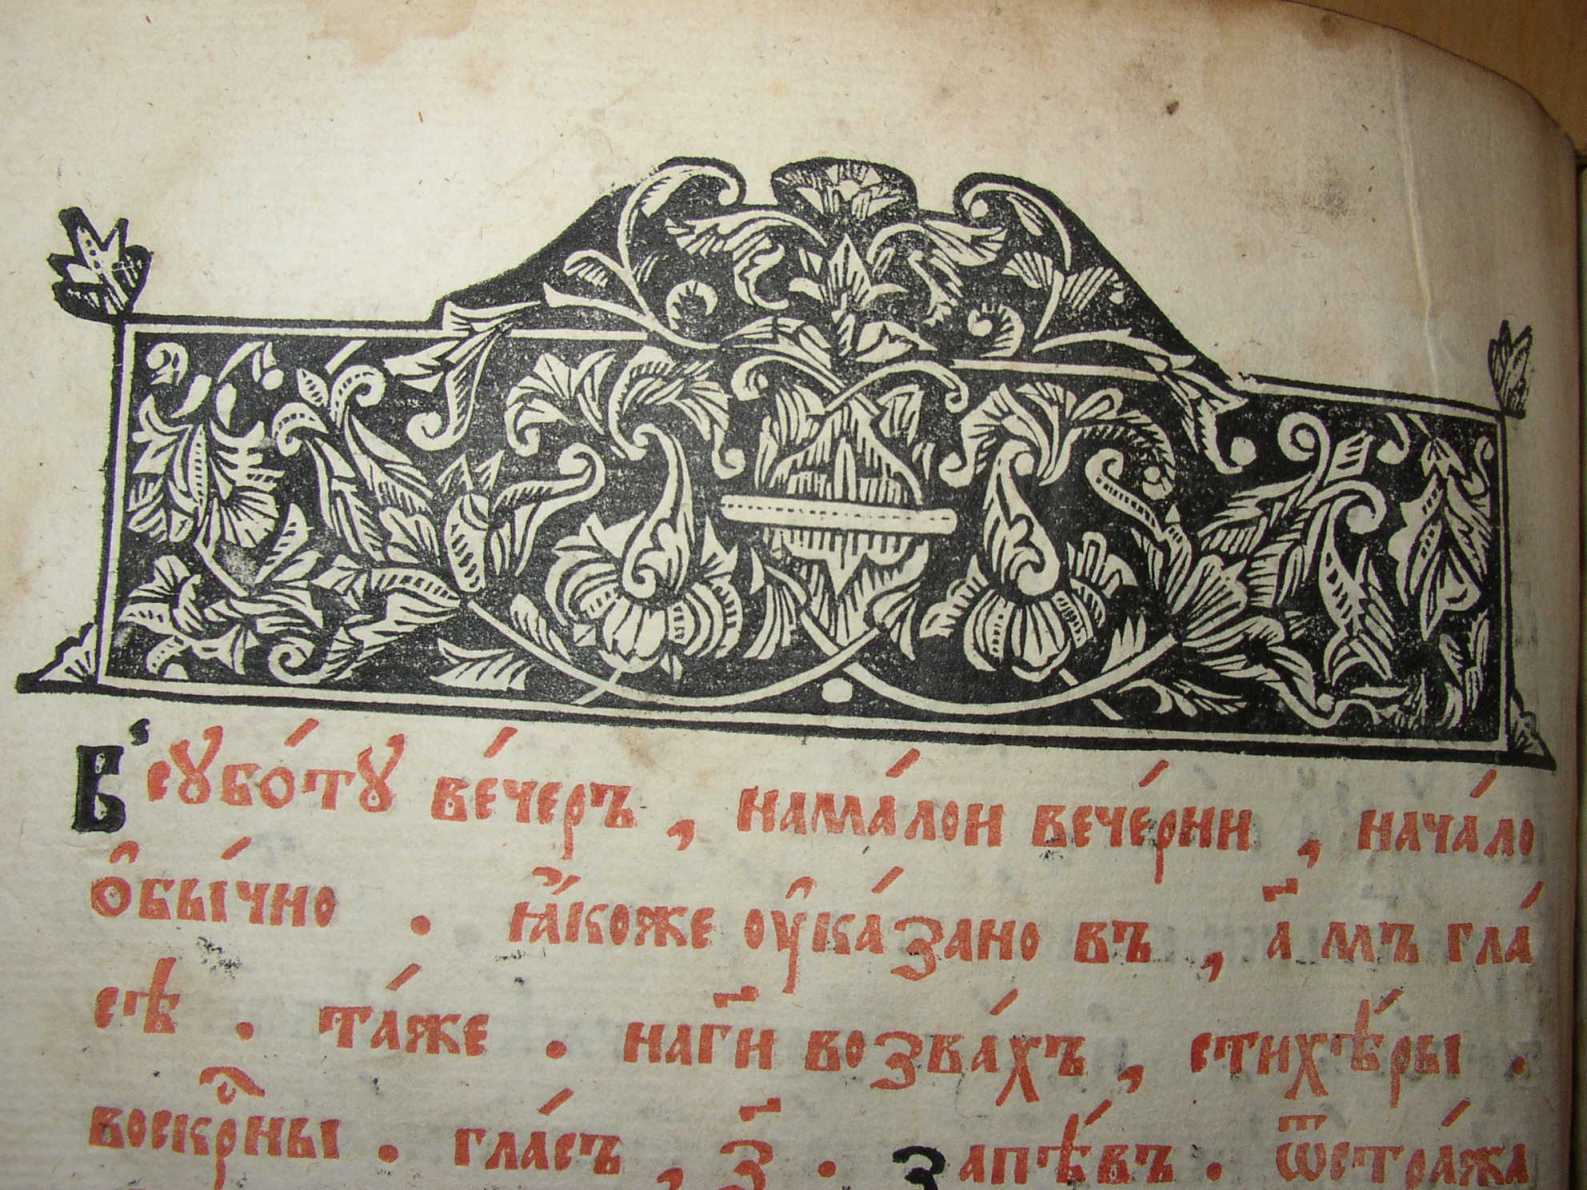 В сꙋбо́тꙋ ве́черъ , нама́лои вече́рни , нача́ло
ѻ҆бы́чно . ꙗ҆́коже ᲂу҆ка́зано въ , а҃мъ гла́
сѣ . та́же . наг҃и возва́хъ , стихѣ́ры .
воскрⷭ҇ны . гла́съ , з҃ . запѣ́въ . ѿстра́жа